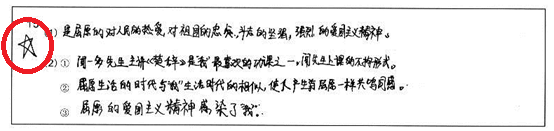 (1) 是屈原的对人民的热爱,对祖国的忠贞,斗志的坚强,强烈的爱国主义精神。
(2)① 闻一多先生主讲《楚辞》是我最喜欢的功课之一,闻先生上课的不拘形式。
② 屈原生活的时代与"我"生活时代的相似,使人产生与屈原一样共鸣同感。
③ 屈原的爱国主义精神感染了"我"。